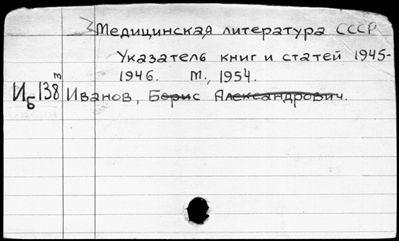 Медицинская литература СССР
Указатель книг и статей 1945-
1946. М., 1954.
Иб 138 м Иванов, Борис Александрович.